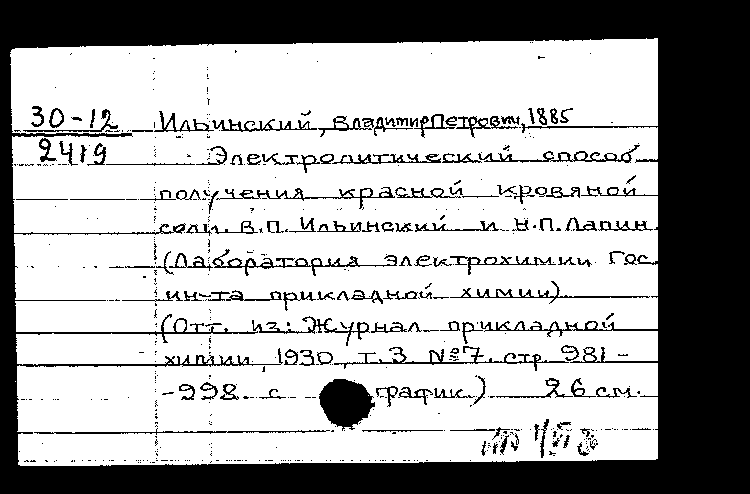 30-12
2419
Ильинский, Владимир Петрович, 1885
Электролитический способ
получения красной кровяной
соли. В.П. Ильинский и Н.П. Лапин
(Лаборатория электрохимии Гос.
ин-та прикладной химии)
(Отт. из: Журнал прикладной
химии, 1930, т. 3 №7. стр. 981-
-998. с график.) 26 см.